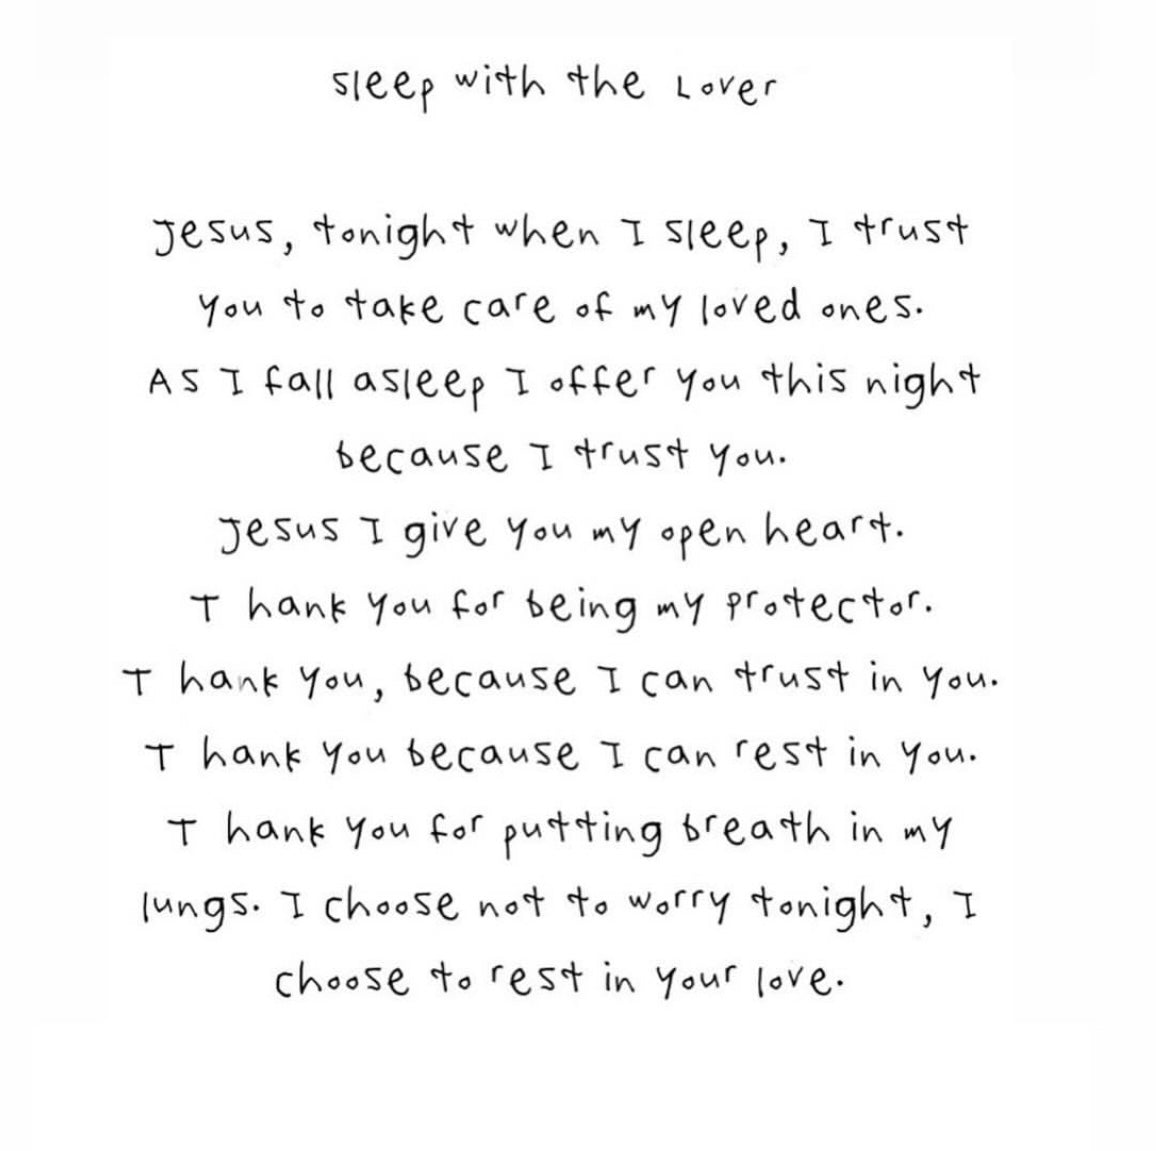 sleep with the Lover
Jesus, tonight when I sleep, I trust
you to take care of my loved ones.
As I fall asleep I offer you this night
because I trust you.
Jesus I give you my open heart.
T hank you for being my protector.
T hank you, because I can trust in you.
T hank you because I can rest in you.
T hank you for putting breath in my
lungs. I choose not to worry tonight, I
choose to rest in your love.